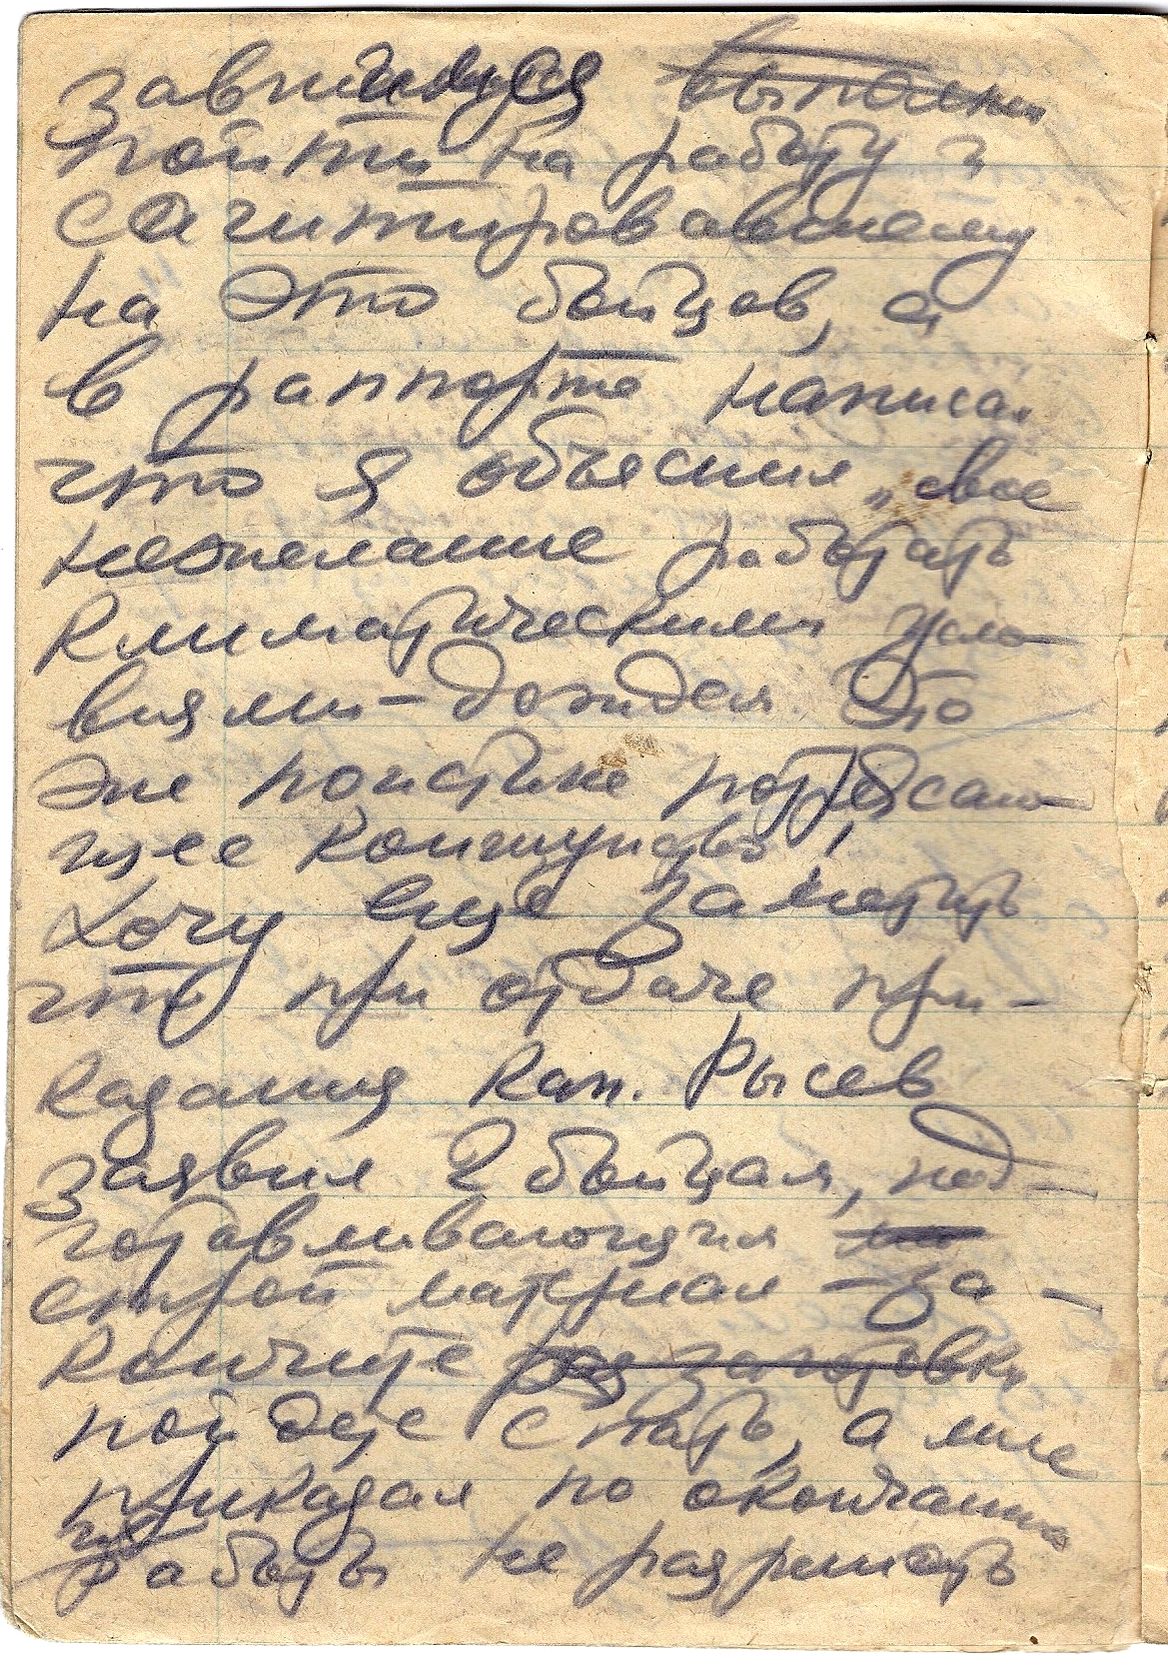 завшемуся выполни
пойти на работу и
сагитировавшему
на это бойцов, а
в раппорте написал
что я объяснил „свое
нежелание работать
климатическими усло-
виями – дождем. Это
же поистине потрясаю-
щее
Хочу еще заметить
что при отдаче при-
казания кап. Рысев
заявил 2 бойцам, под-
готавливающим
строй материал – за-
кончите заготовки
пойдете спать, а мне
приказал по окончании
работы не разрешать